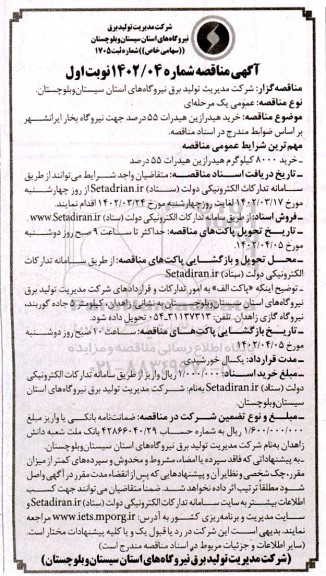 شرکت مدیریت تولید برق
نیروگاه‌های استان سیستان و بلوچستان
((سهامی خاص)) شماره ثبت ۱۷۰۵
آگهی مناقصه شماره ۱۴۰۲/۰۴ نوبت اول
مناقصه‌گزار: شرکت مدیریت تولید برق نیروگاه‌های استان سیستان‌وبلوچستان.
نوع مناقصه: عمومی یک مرحله‌ای
موضوع مناقصه: خرید هیدرازین هیدرات ۵۵ درصد جهت نیروگاه بخار ایرانشهر
بر اساس ضوابط مندرج در اسناد مناقصه.
مهم‌ترین شرایط عمومی مناقصه
ـ خرید ۸۰۰۰ کیلوگرم هیدرازین هیدرات ۵۵ درصد
ـ تاریخ دریافت اسناد مناقصه: متقاضیان واجد شرایط می‌توانند از طریق
سامانه تدارکات الکترونیکی دولت (ستاد) Setadrian.ir از روز چهارشنبه
مورخ ۱۴۰۲/۰۳/۱۷ لغایت روز چهارشنبه مورخ ۱۴۰۲/۰۳/۲۴ اقدام نمایند.
ـ فروش اسناد: از طریق سامانه تدارکات الکترونیکی دولت (ستاد) www.Setadiran.ir
ـ تاریخ تحویل پاکت‌های مناقصه: حداکثر تا ساعت ۹ صبح روز دوشنبه
مورخ ۱۴۰۲/۰۴/۰۵.
ـ محل تحویل و بازگشایی پاکت‌های مناقصه: از طریق سامانه تدارکات
الکترونیکی دولت (ستاد) Setadiran.ir
ـ توضیح اینکه «پاکت الف» به امور تدارکات و قراردادهای شرکت مدیریت تولید برق
نیروگاه‌های استان سیستان‌وبلوچستان به نشانی زاهدان، کیلومتر ۵ جاده گوربند،
نیروگاه گازی زاهدان. تلفن: ۳۱۱۳۷۳۱۳-۰۵۴ تحویل داده شود.
ـ تاریخ بازگشایی پاکت‌های مناقصه: ساعت ۱۰ صبح روز دوشنبه
مورخ ۱۴۰۲/۰۴/۰۵
ـ مدت قرارداد: یکسال خورشیدی.
ـ مبلغ خرید اسناد: ۱/۰۰۰/۰۰۰ ریال واریز از طریق سامانه تدارکات الکترونیکی
دولت (ستاد) Setadiran.ir به‌نام: شرکت مدیریت تولید برق نیروگاه‌های استان
سیستان‌وبلوچستان.
ـ مبلغ و نوع تضمین شرکت در مناقصه: ضمانت‌نامه بانکی یا واریز مبلغ
۱/۶۰۰/۰۰۰/۰۰۰ ریال به شماره حساب ۴۲۸۶۶۰۴۰/۲۹ بانک ملت شعبه دانش
زاهدان به‌نام شرکت مدیریت تولید برق نیروگاه‌های استان سیستان‌وبلوچستان.
ـ به پیشنهاداتی که فاقد سپرده یا امضاء، مشروط و مخدوش و سپرده‌های کمتر از میزان
مقرر، چک شخصی و نظایر آن و پیشنهادهایی که پس از انقضاء مدت مقرر در آگهی واصل
شود مطلقاً ترتیب اثر داده نخواهد شد. ضمنا متقاضیان می‌توانند جهت کسب
اطلاعات بیشتر به سایت سامانه تدارکات الکترونیکی دولت (ستاد) Setadiran.ir و
سایت مدیریت و برنامه‌ریزی کشور به آدرس: www.iets.mporg.ir مراجعه
نمایند. بدیهی است این شرکت در رد یا قبول یک و یا کلیه پیشنهادات مختار است.
(سایر اطلاعات و جزئیات مربوط در اسناد مناقصه مندرج است)
(شرکت مدیریت تولید برق نیروگاه‌های استان سیستان و بلوچستان)